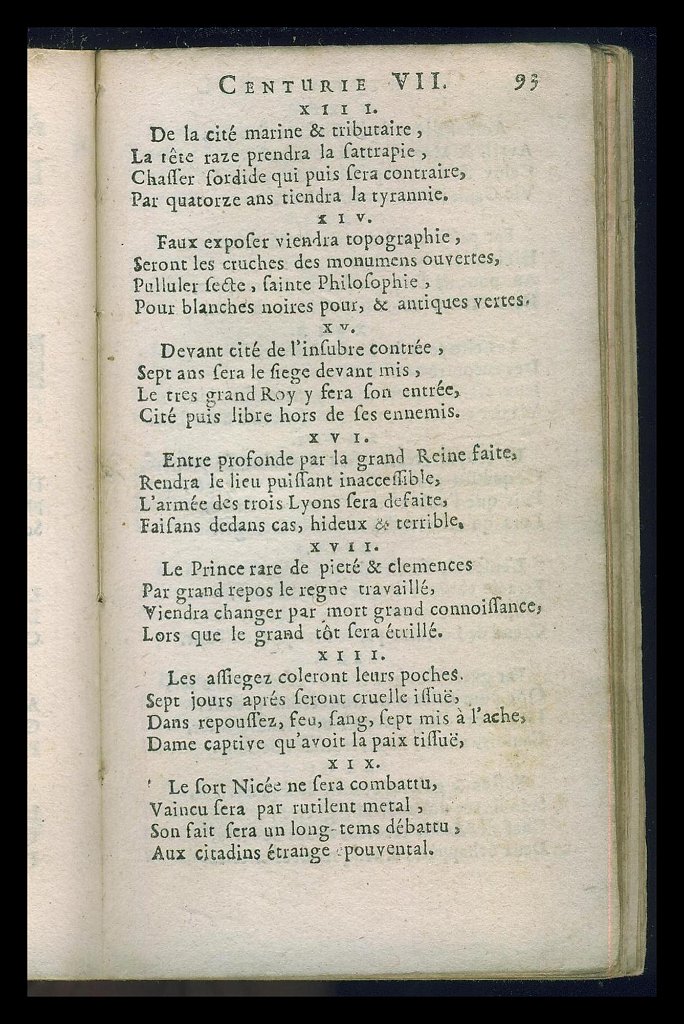 CENTURIE VII. 93
XIII.
De la cité marine & tributaire,
La tête raze prendra la sattrapie,
Chasser sordide qui puis sera contraire,
Par quatorze ans tiendra la tyrannie.
XIV.
Faux exposer viendra topographie,
Seront les cruches des monumens ouvertes,
Pulluler secte, sainte Philosophie,
Pour blanches noires pour, & antiques vertes.
XV.
Devant cité de l'insubre contrée,
Sept ans sera le siege devant mis,
Le tres grand Roy y fera son entrée,
Cité puis libre hors de ses ennemis.
XVI.
Entre profonde par la grand Reine faite,
Rendra le lieu puissant inaccessible,
L'armée des trois Lyons sera defaite,
Faisans dedans cas, hideux & terrible.
XVII.
Le Prince rare de pieté & clemences
Par grand repos le regne travaillé,
Viendra changer par mort grand connoissance,
Lors que le grand tôt sera étrillé.
XIII.
Les assiegez coleront leurs poches.
Sept jours aprés seront cruelle issuë,
Dans repoussez, feu, sang, sept mis à l'ache,
Dame captive qu'avoit la paix tissuë,
XIX.
Le sort Nicée ne sera combattu,
Vaincu sera par rutilent metal,
Son fait sera un long-tems débattu,
Aux citadins étrange epouvental.